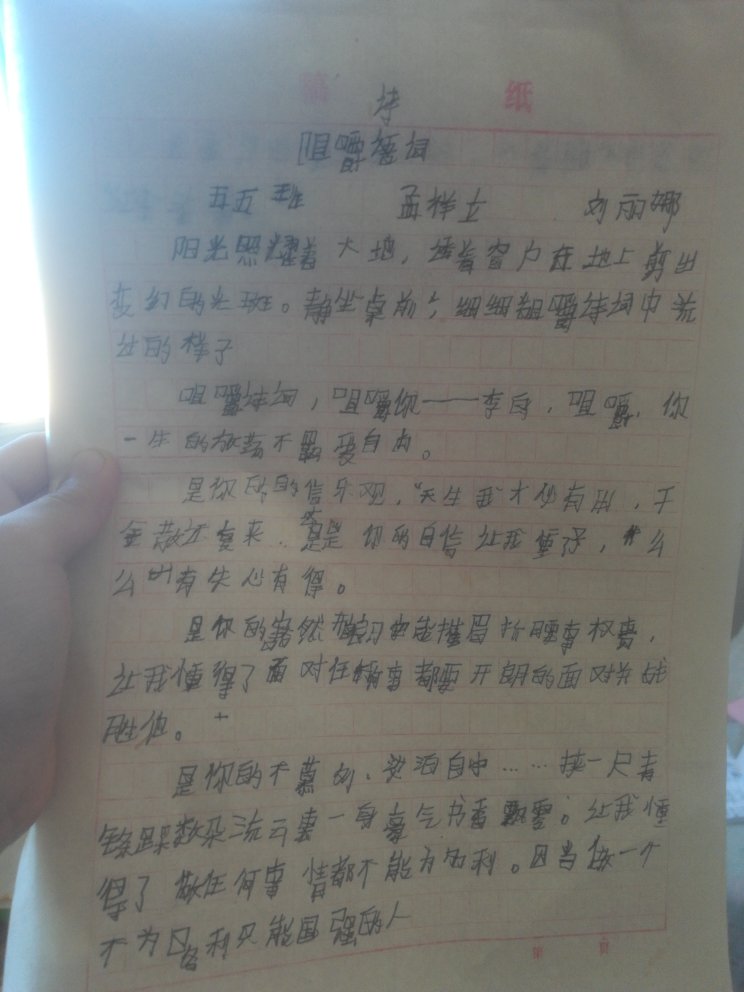 稿 纸
诗
咀嚼诗词
五五班 孟祥立 刘丽娜
阳光照耀着大地,透着窗户在地上剪出
变幻的光斑。静坐桌前,细细咀嚼诗词中流
过的样子
咀嚼诗词,咀嚼你——李白,咀嚼,你
一生的放荡不羁爱自由。
是你的自信乐观,“天生我才必有用,千
金散还复来,是你的自信让我懂得,什么
么叫有失必有得。
是你的安能摧眉折腰事权贵,
让我懂得了面对任何事都要开朗的面对并战
胜他。
是你的不慕名利、淡泊自由……挟一尺青
锋踩数朵流云裹一身豪气书香飘零。让我懂
得了做任何事情都不能为名利。因当做一个
不为名利只能国强的人
第 页